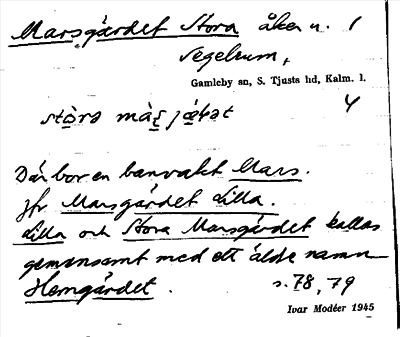 Marsgärdet Stora åker n. 1
Segelrum,
Gamleby sn, S. Tjusts hd, Kalm. l.
4
Där bor en banvakt Mars.
Jfr Marsgärdet Lilla.
Lilla och Stora Marsgärdet kallas
gemensamt med ett äldre namn
Hemgärdet. s. 78, 79
Ivar Modéer 1945